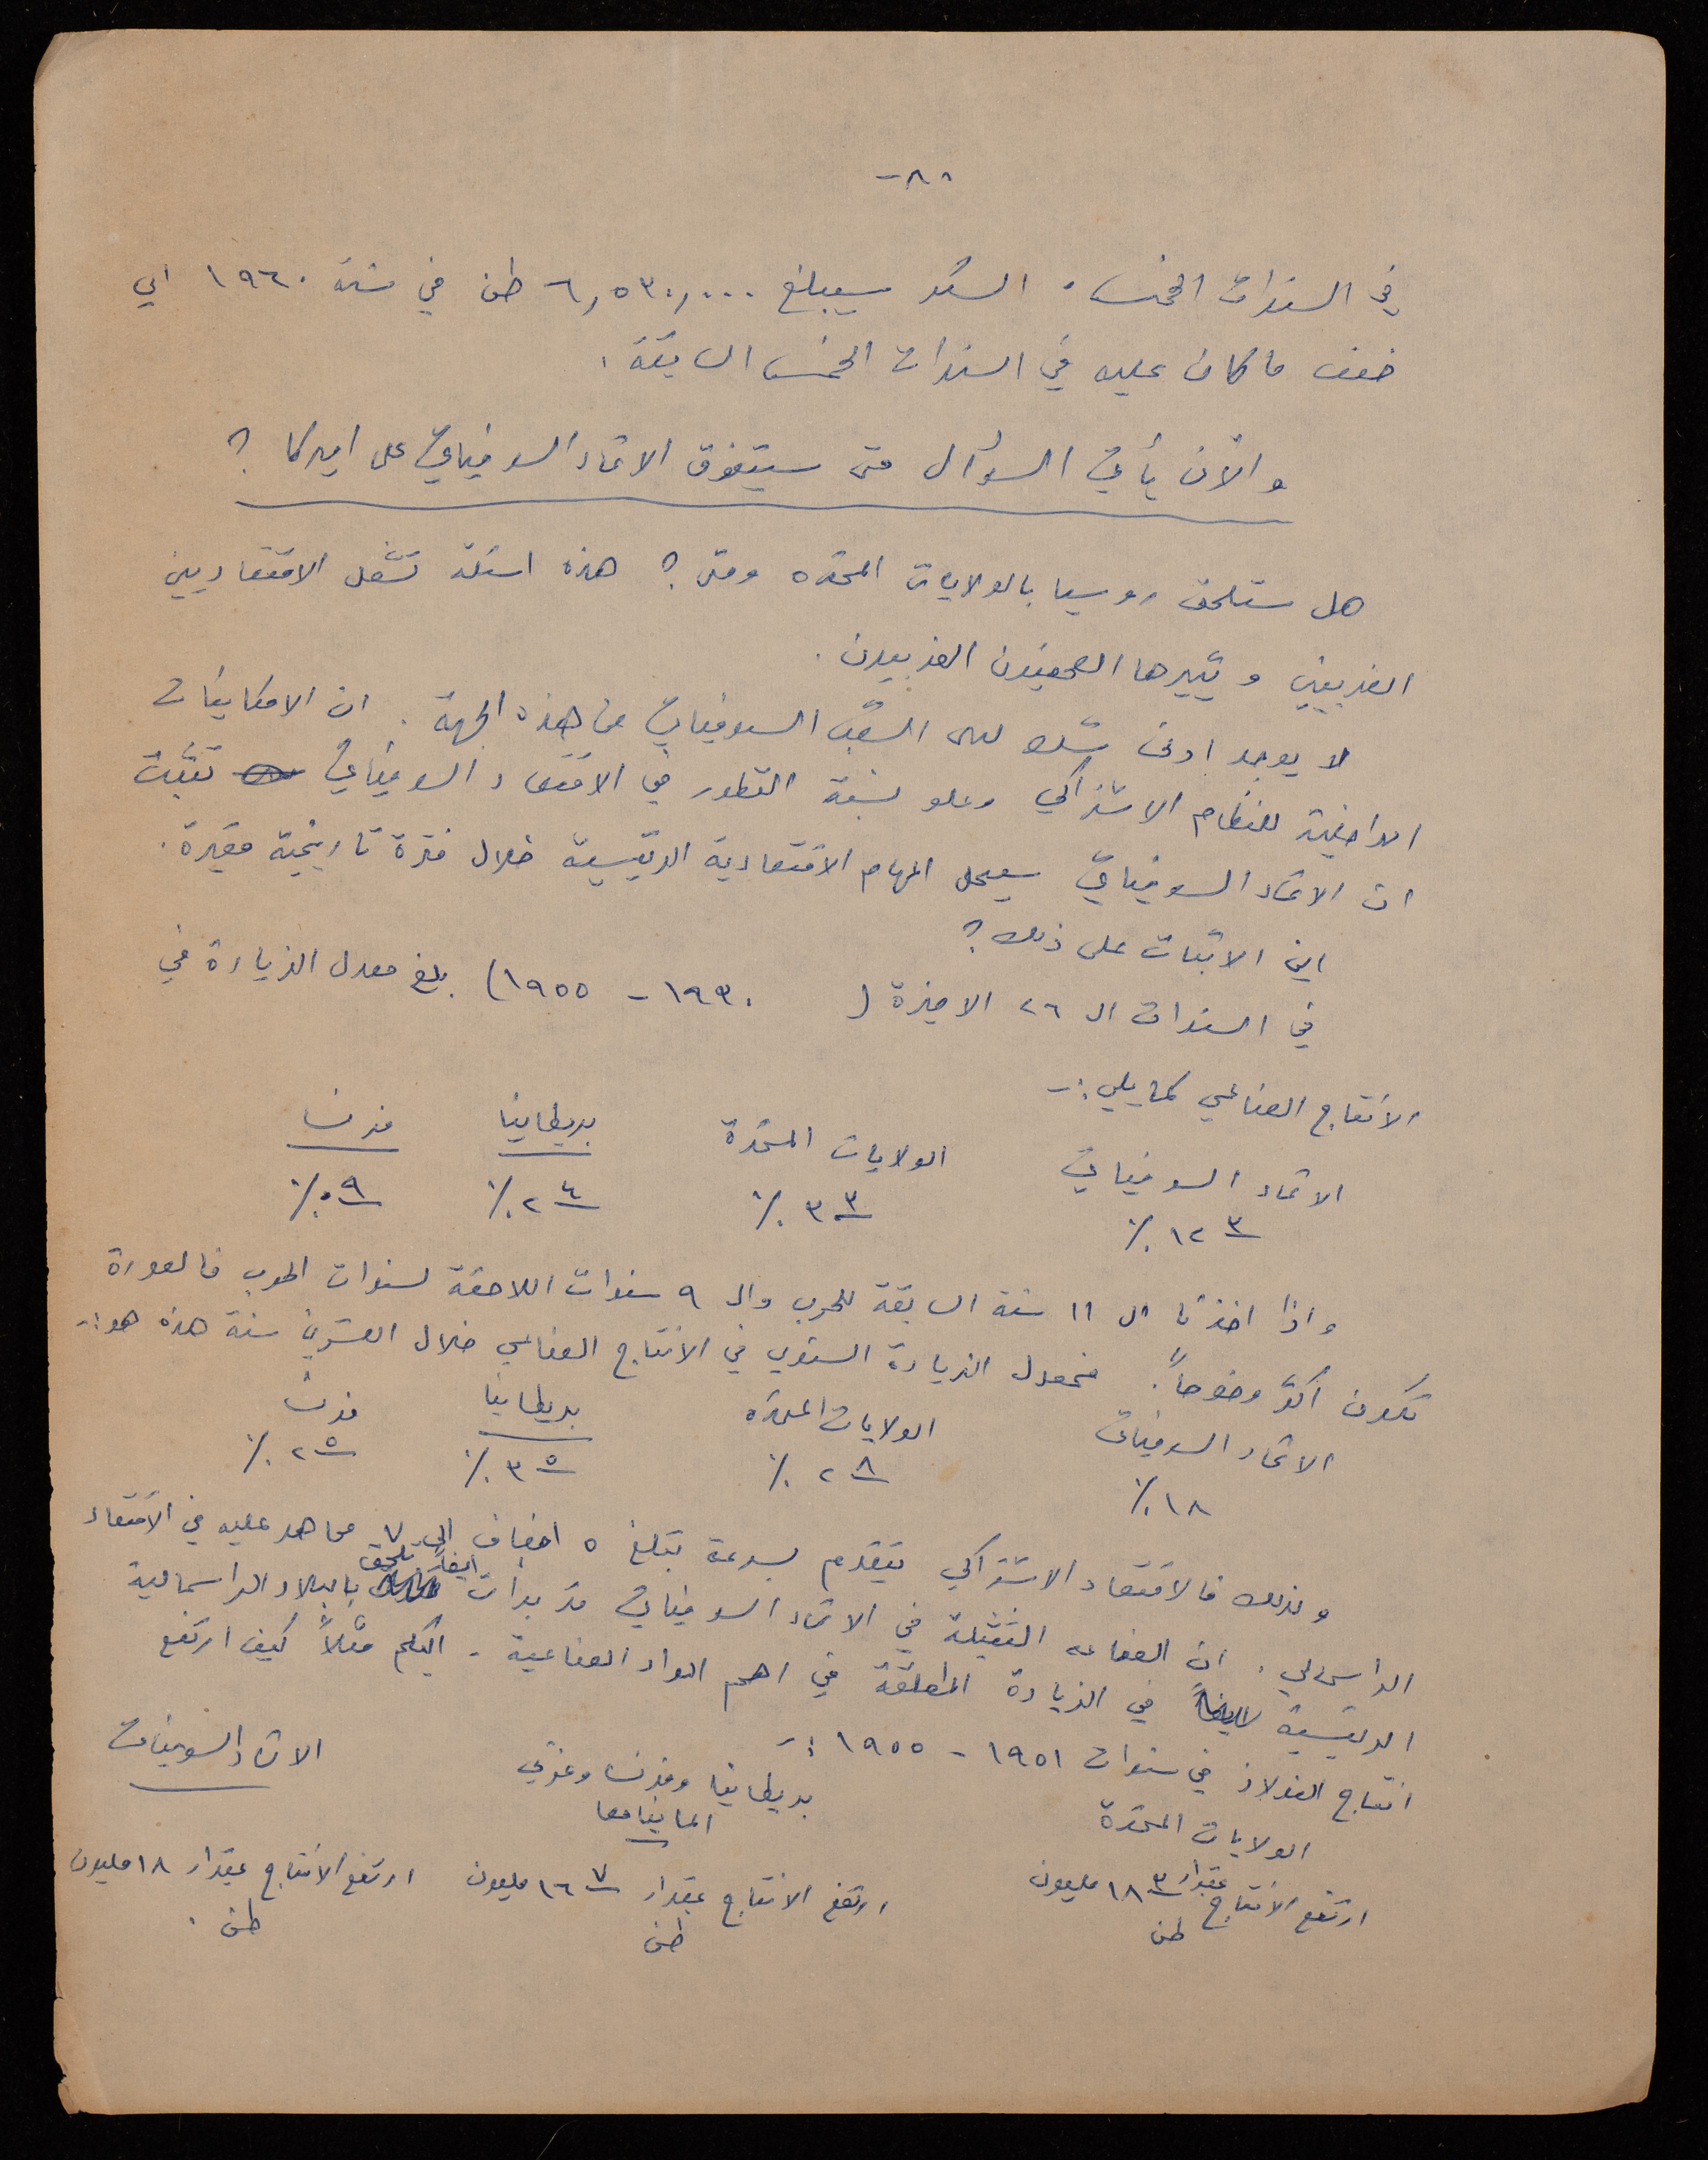 -٨٠
في السنوات الخمس . السكر سيبلغ ٦,٥٣٠,٠٠٠ طن في سنة ١٩٦٠ اي
ضعف ما كان عليه في السنوات الخمس السابقة .
والآن يأتي السؤال متى سيتفوق الاتحاد السوفياتي على اميركا ؟
هل ستلحق روسيا بالولايات المتحده ومتى ؟ هذه اسئلة تشغل الاقتصاديين
الغربيين ويثيرها الصحفيون الغربيون .
لا يوجد ادنى شك لدى الشعب السوفياتي من هذه الجهة . ان الامكانيات
الداخلية للنظام الاشتراكي وعلو نسبة التطور في الاقتصاد السوفياتي تثبت
ان الاتحاد السوفياتي سيحل المهام الاقتصادية الرئيسية خلال فترة تاريخية قصيرة .
اين الاثبات على ذلك ؟
في السنوات الـ ٢٦ الاخيرة ( ١٩٣٠ - ١٩٥٥ ) بلغ معدل الزيادة في
الانتاج الصناعي كما يلي :-
الاتحاد السوفياتي الولايات المتحدة بريطانيا فرنسا
١٢٣ ٪ ٣٣ ٪ ٢٤ ٪ ٠٩ ٪
واذا اخذنا الـ ١١ سنة السابقة للحرب والـ ٩ سنوات اللاحقة لسنوات الحرب فالصورة
تكون اكثر وضوحاً . فمعدل الزيادة السنوي في الانتاج الصناعي خلال العشرين سنة هذه هو :-
الاتحاد السوفياتي الولايات المتحده بريطانيا فرنسا
١٨ ٪ ٢٨ ٪ ٣٥ ٪ ٢٥ ٪
ولذلك فالاقتصاد الاشتراكي يتقدم بسرعة تبلغ ٥ اضعاف الى ٧ مما هو عليه في الاقتصاد
الراسمالي . ان الصناعه الثقيلة في الاتحاد السوفياتي قد بدأت ايضاً تلحق بالبلاد الراسمالية
الرئيسية في الزيادة المطلقة في اهم المواد الصناعية . اليكم مثلاً كيف ارتفع
انتاج الفولاذ في سنوات ١٩٥١ - ١٩٥٥ :-
الولايات المتحدة بريطانيا وفرنسا وغربي المانيا معا الاتحاد السوفياتي
ارتفع الانتاج بمقدار ١٨٣ مليون طن ارتفع الانتاج بمقدار ١٦٧ مليون طن ارتفع الانتاج بمقدار ١٨ مليون طن .